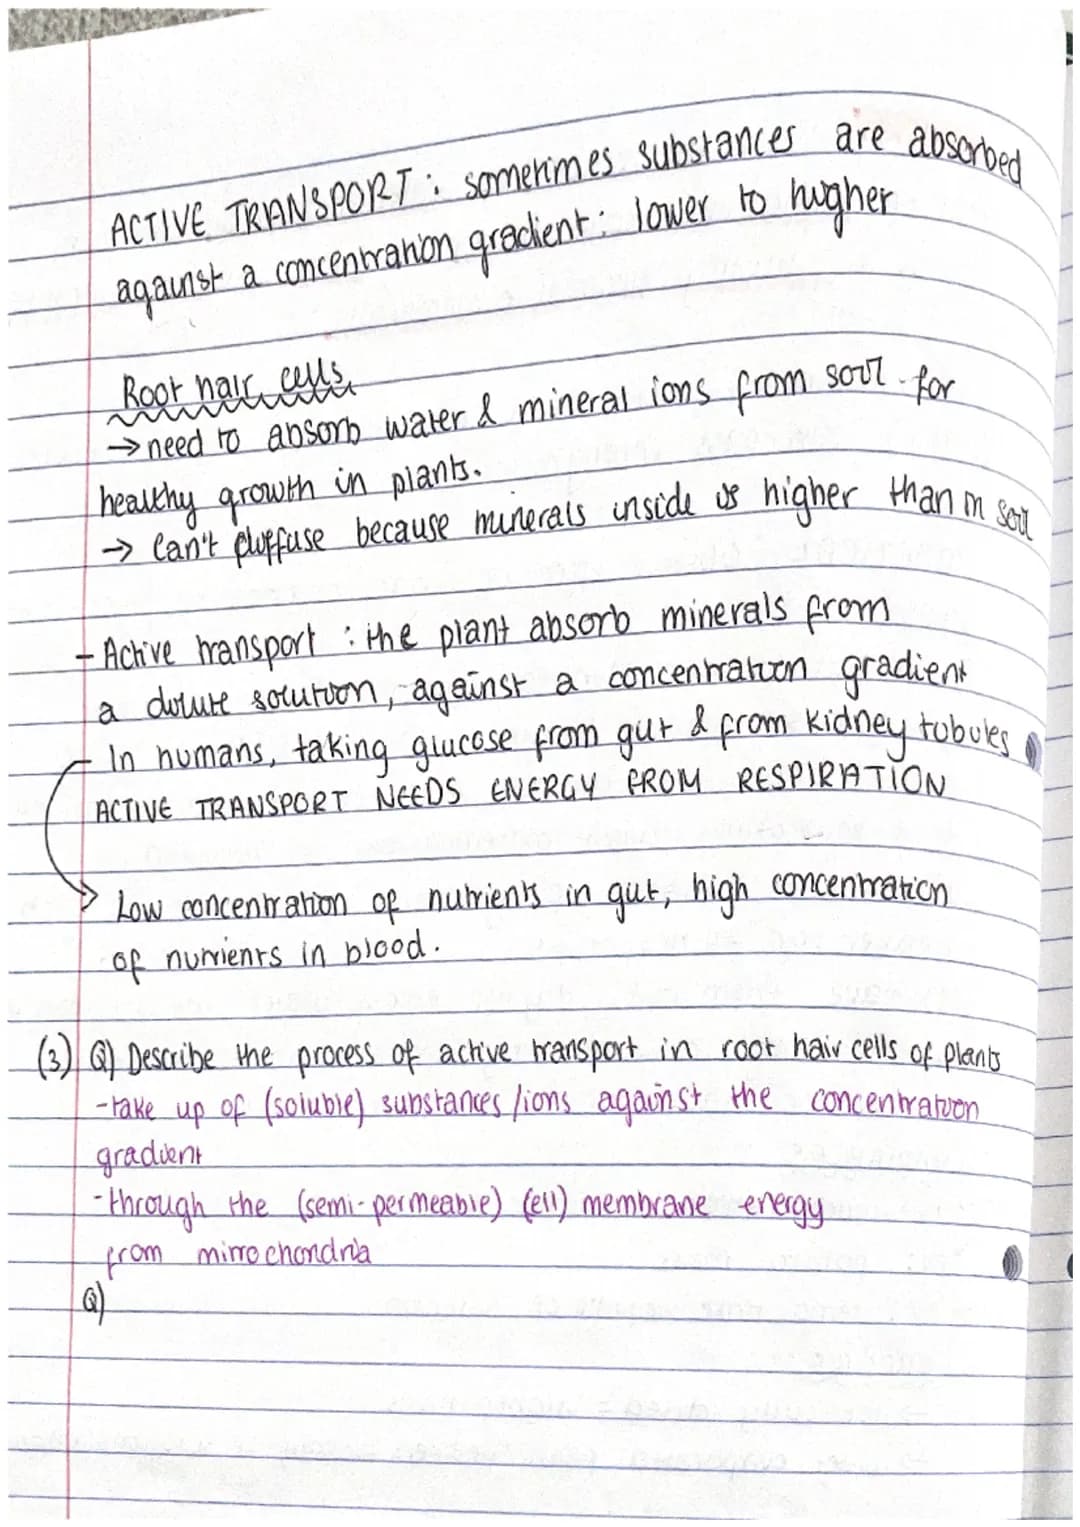 ACTIVE TRANSPORT : sometimes substances are absorbed
against a concentration gradient : lower to higher
Root hair cells
→ need to absorb water & mineral ions from soil for
healthy growth in plants.
→ Can't diffuse because minerals inside is higher than in soil
- Active transport : the plant absorb minerals from
a dilute solution, against a concentration gradient
In humans, taking glucose from gut & from kidney tobules
ACTIVE TRANSPORT NEEDS ENERGY FROM RESPIRATION
Low concentration of nutrients in gut, high concentration
of nutrients in blood.
(3) Q) Describe the process of active transport in root hair cells of plants
-take up of (soluble) substances /ions against the concentration
gradient
-through the (semi-permeable) (cell) membrane energy
from mitochondria
Q)